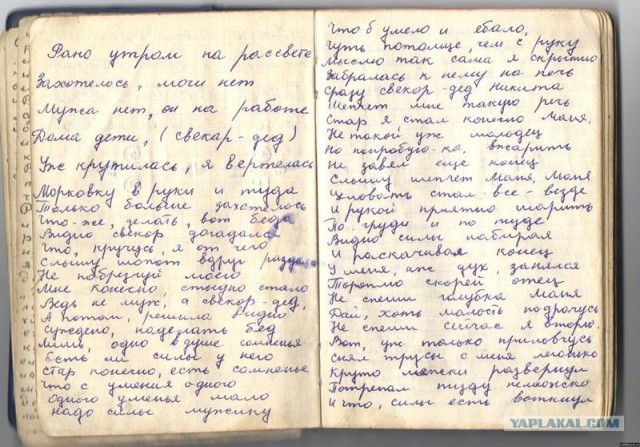 Рано утром на рассвете
Захотелось, мочи нет
Мужа нет, он на работе
Дома дети, (свекар-дед)
Уж крутилась, я вертелась
Морковку в руки и туда
Только больше захотелось
Что-же, делать, вот беда
Видно свекор догадался
Что, кручусь, я от чего
Слышу шопот вдруг раздался
Не побрезгуй мого
Мне конечно, стыдно стало
Ведь не муж, а свекор-дед,
А потом, решила видно
суждено, наделать бед
Лишь, одно в душе сомненья
Есть ли силы у него
стар конечно, есть сомненье
что с уменья одного
одного уменья мало
надо силы мужику
Что б умело и ебало,
Чуть потолще, чем с руку
Мыслю так сама я скрытно
Забралась к нему на печь
Сразу свекор-дед Никита
Шепчет мне такую речь
Стар я стал конечно Маня,
Не такой уж молодец
Но попробую-ка, вжарить
Не завел еще конец
Слышу шепчет Маня, Маня
Целовать стал все-везде
И рукой приятно шарить
По груди и по пизде
Видно силы набирая
И раскачивая конец
У меня, аж дух, занялся
Тороплю скорей отец
Не спеши голубка Маня
Дай, хоть малость подрочусь
Не спеши сейчас я вторю.
Вот, уж только приловчусь
снял трусы с меля легонько
Круто ляжки развернул
Потрепал пизду немножко
и что, силы есть воткнул
YAPLAKAL.COM